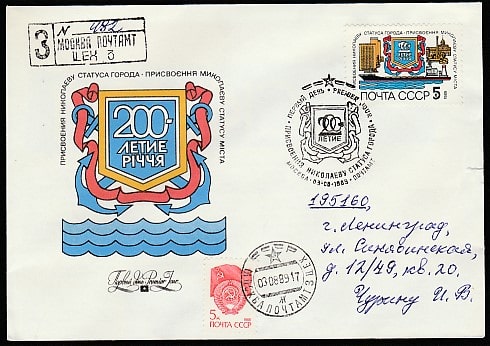 З
N 482
МОСКВА ПОЧТАМТ
ЦЕХ 3
ПРИСВОЕНИЯ НИКОЛАЕВУ СТАТУСА ГОРОДА · ПРИСВОЄННЯ МИКОЛАЄВУ СТАТУСУ МІСТА
200-
ЛЕТИЕ
РІЧЧЯ
Первый день Premier Jour
ПРИСВОЕНИЯ НИКОЛАЕВУ СТАТУСА ГОРОДА · ПРИСВОЄННЯ МИКОЛАЄВУ СТАТУСУ МІСТА
ПОЧТА СССР 5к
1989
ПЕРВЫЙ ДЕНЬ · PREMIER JOUR
200-
ЛЕТИЕ
ПРИСВОЕНИЯ НИКОЛАЕВУ СТАТУСА ГОРОДА
МОСКВА · 03-08-1989 · ПОЧТАМТ
СССР
03 08 89 17
Ж
МОСКВА ПОЧТАМТ ЦЕХ 3
5к
ПОЧТА СССР
195160,
г. Ленинград,
ул. Синявинская,
д. 12/49, кв. 20.
Чурину И. В.